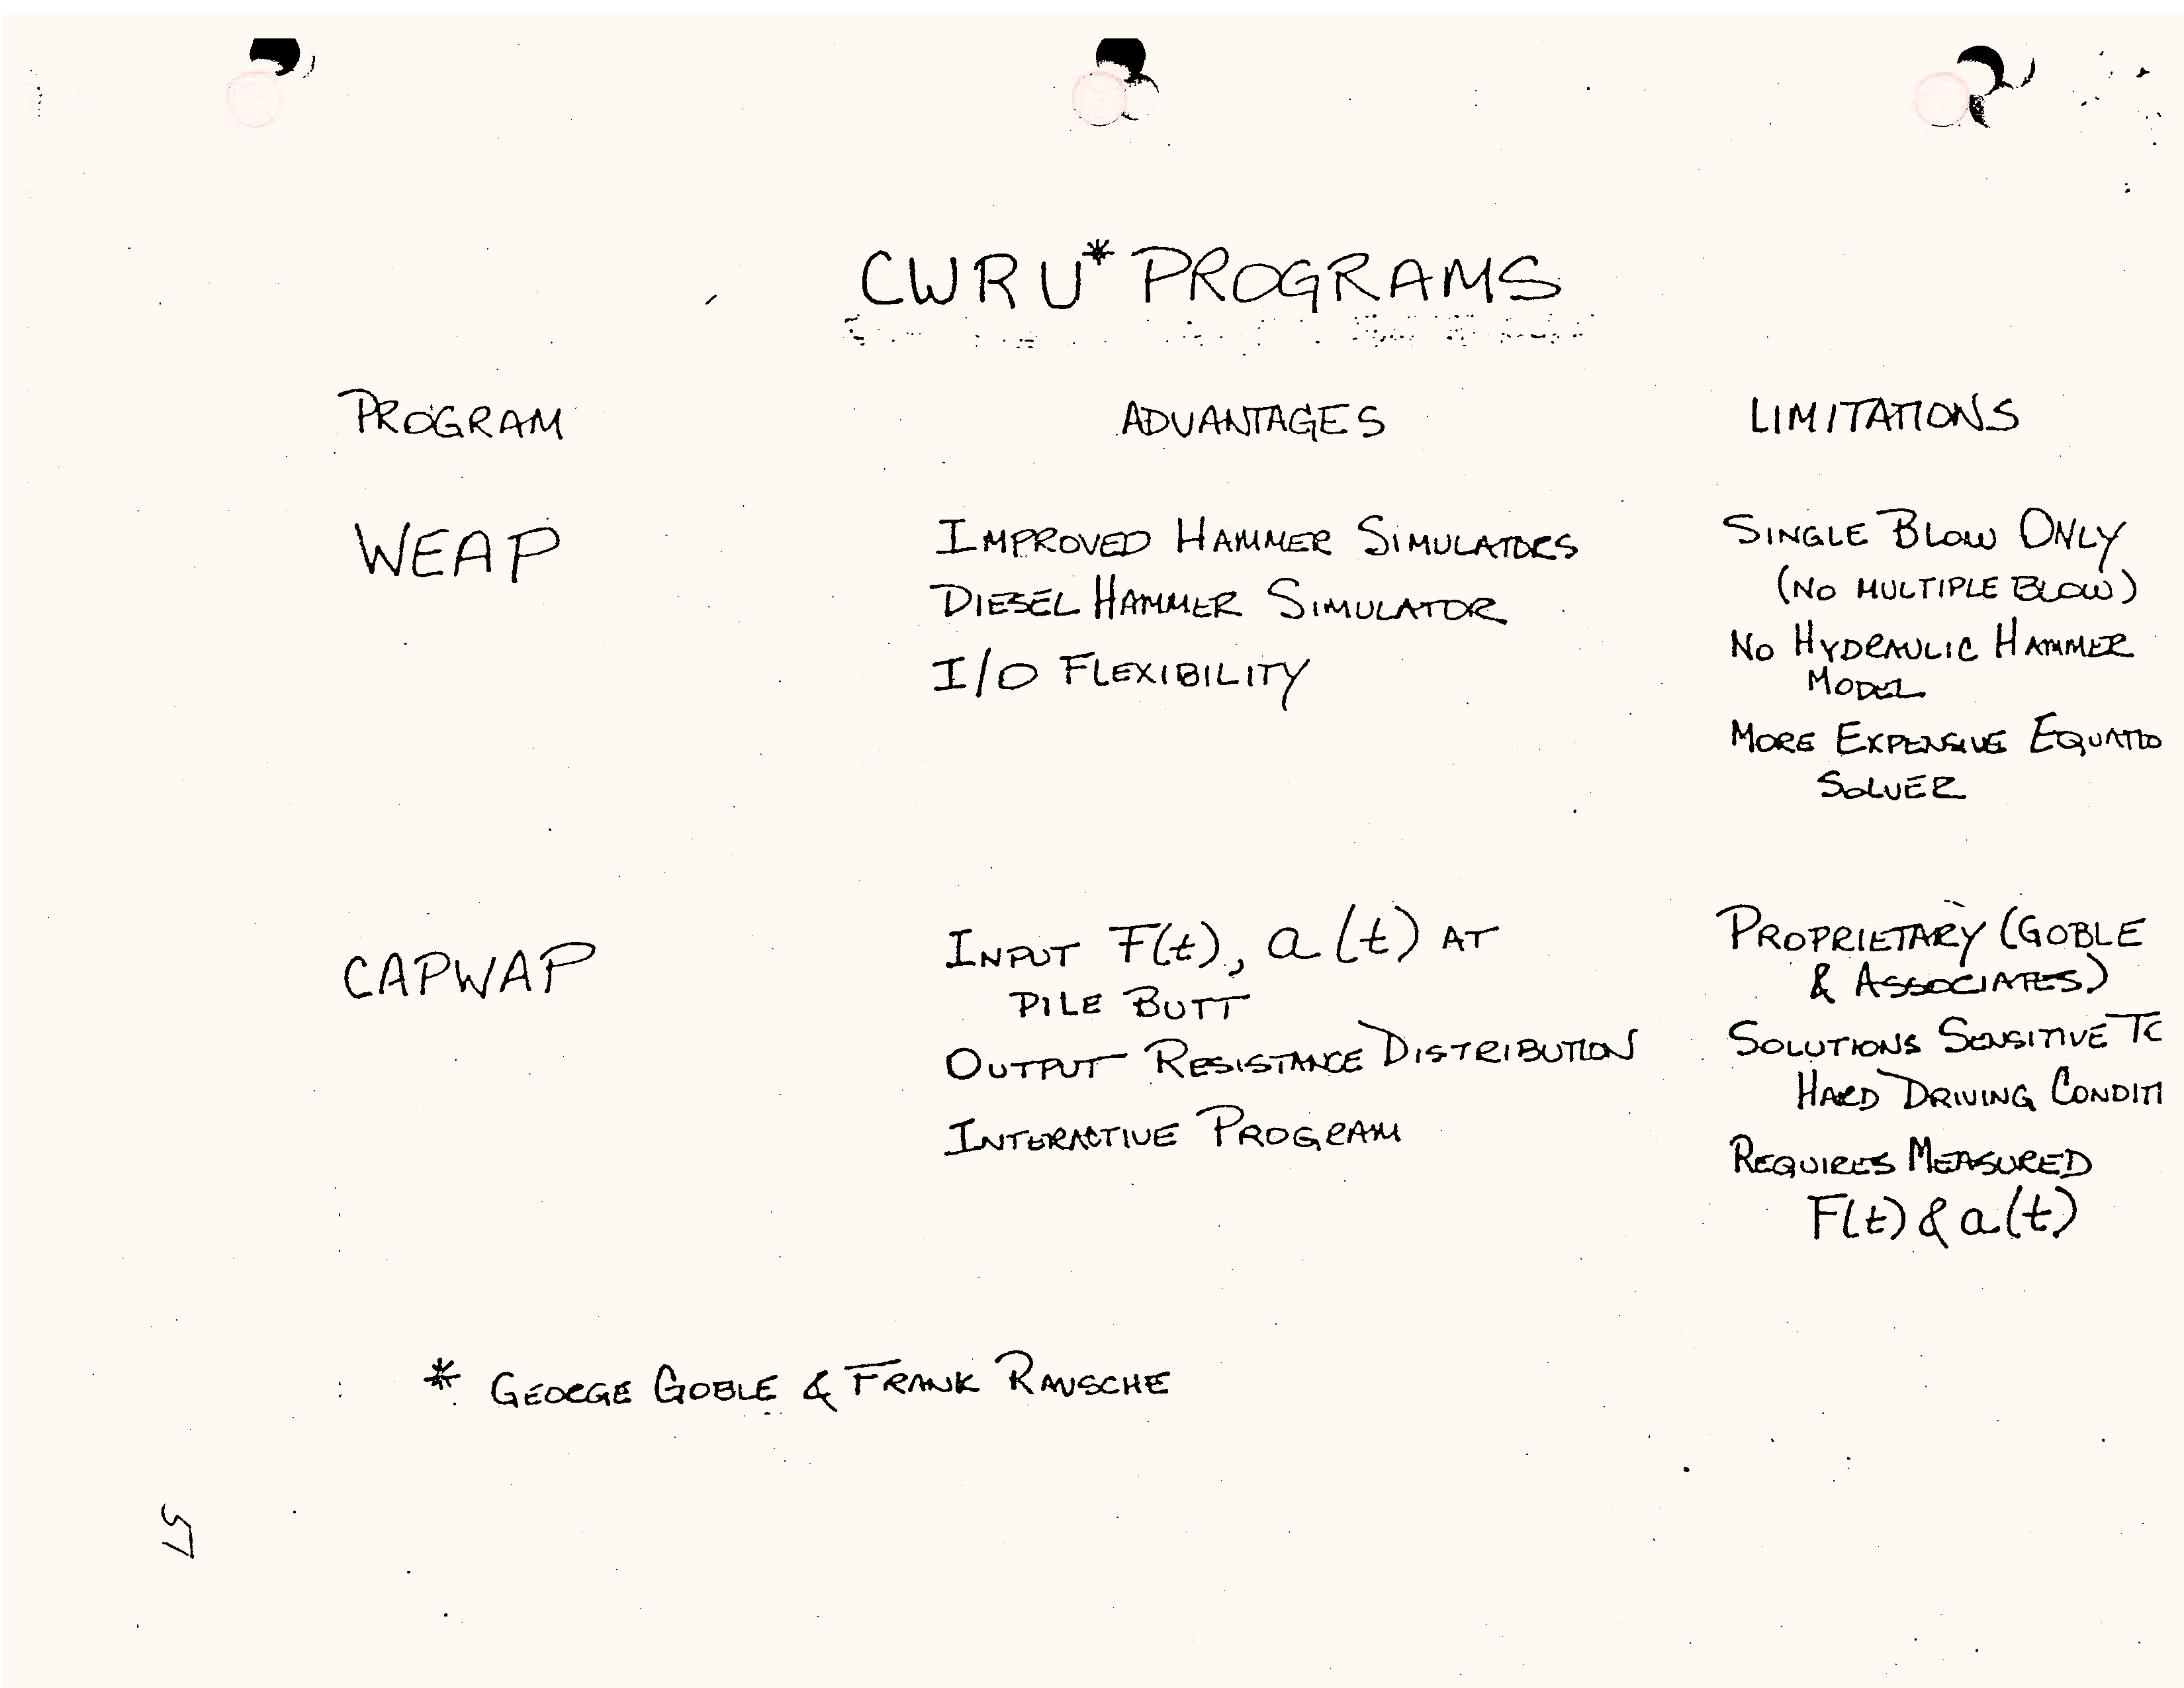 CWRU* PROGRAMS
PROGRAM ADVANTAGES LIMITATIONS
WEAP
IMPROVED HAMMER SIMULATORS
DIESEL HAMMER SIMULATOR
I/O FLEXIBILITY
SINGLE BLOW ONLY
(NO MULTIPLE BLOW)
NO HYDRAULIC HAMMER
MODEL
MORE EXPENSIVE EQUATIO
SOLVER
CAPWAP
INPUT F(t), a(t) AT
PILE BUTT
OUTPUT RESISTANCE DISTRIBUTION
INTERACTIVE PROGRAM
PROPRIETARY (GOBLE
& ASSOCIATES)
SOLUTIONS SENSITIVE TO
HARD DRIVING CONDITI
REQUIRES MEASURED
F(t) & a(t)
* GEORGE GOBLE & FRANK RAUSCHE
57